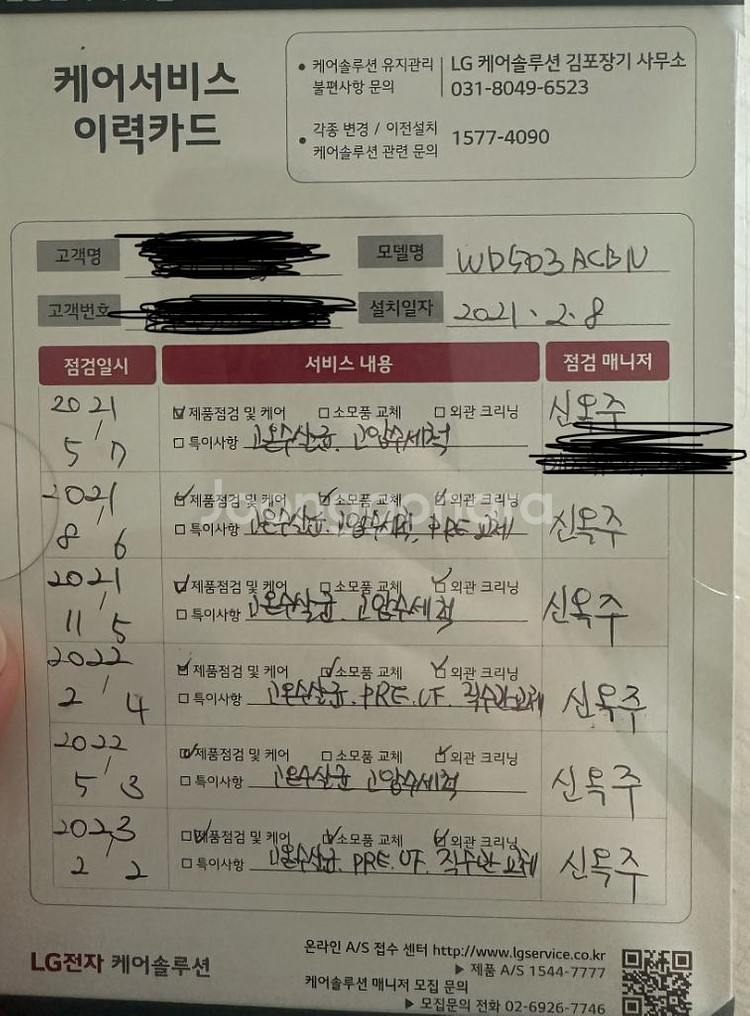 케어서비스
이력카드
• 케어솔루션 유지관리 불편사항 문의
LG 케어솔루션 김포장기 사무소
031-8049-6523
• 각종 변경 / 이전설치 케어솔루션 관련 문의
1577-4090
고객명
모델명 WD503ACBN
고객번호
설치일자 2021.2.8
점검일시 서비스 내용 점검 매니저
2021 5/7
제품점검 및 케어 소모품 교체 외관 크리닝
특이사항 고온수살균. 고압수세척
신옥주
2021 8/6
제품점검 및 케어 소모품 교체 외관 크리닝
특이사항 고온수살균. 고압수세척, PRE 교체
신옥주
Joonggonara
2021 11/5
제품점검 및 케어 소모품 교체 외관 크리닝
특이사항 고온수살균 고압수세척
신옥주
2022 2/4
제품점검 및 케어 소모품 교체 외관 크리닝
특이사항 고온수살균. PRE. UF. 직수관교체
신옥주
2022 5/3
제품점검 및 케어 소모품 교체 외관 크리닝
특이사항 고온수살균 고압수세척
신옥주
2023 2/2
제품점검 및 케어 소모품 교체 외관 크리닝
특이사항 고온수살균. PRE. UF. 직수관 교체
신옥주
LG전자 케어솔루션
온라인 A/S 접수 센터 http://www.lgservice.co.kr
▶ 제품 A/S 1544-7777
케어솔루션 매니저 모집 문의
▶ 모집문의 전화 02-6926-7746